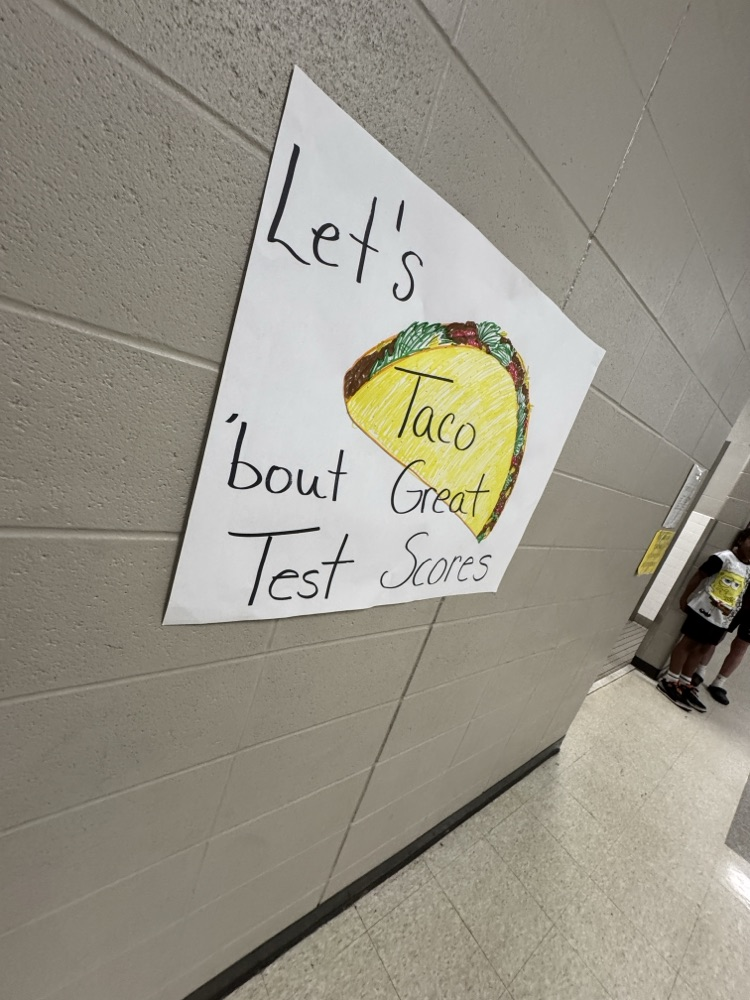 Let's
Taco
'bout Great
Test Scores